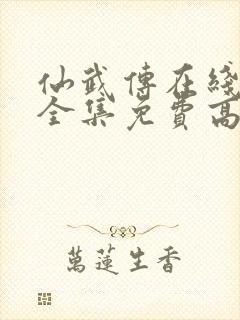 仙武傳在綫
全集免費高
萬蓮生香